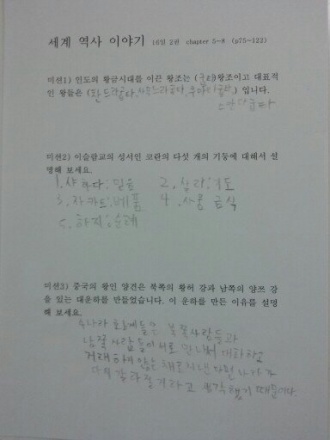 세계 역사 이야기 18일 2권 chapter 5-8 (p75-122)
미션1) 인도의 황금시대를 이끈 왕조는 (굽타)왕조이고 대표적
인 왕들은 (찬드라굽타, 사무드라굽타, ) 입니다.
미션2) 이슬람교의 성서인 코란의 다섯 개의 기둥에 대해서 설
명해 보세요.
1. 샤하다: 믿음 2. 살라: 기도
3. 자카트: 베품 4. 사움: 금식
5. 하지: 순례
미션3) 중국의 왕인 양견은 북쪽의 황허 강과 남쪽의 양쯔 강
을 잇는 대운하를 만들었습니다. 이 운하를 만든 이유를 설명
해 보세요.
수나라 북쪽사람들과
남쪽 사람들이 서로 만나서 대화하고
나라가
생각했기 때문이다.